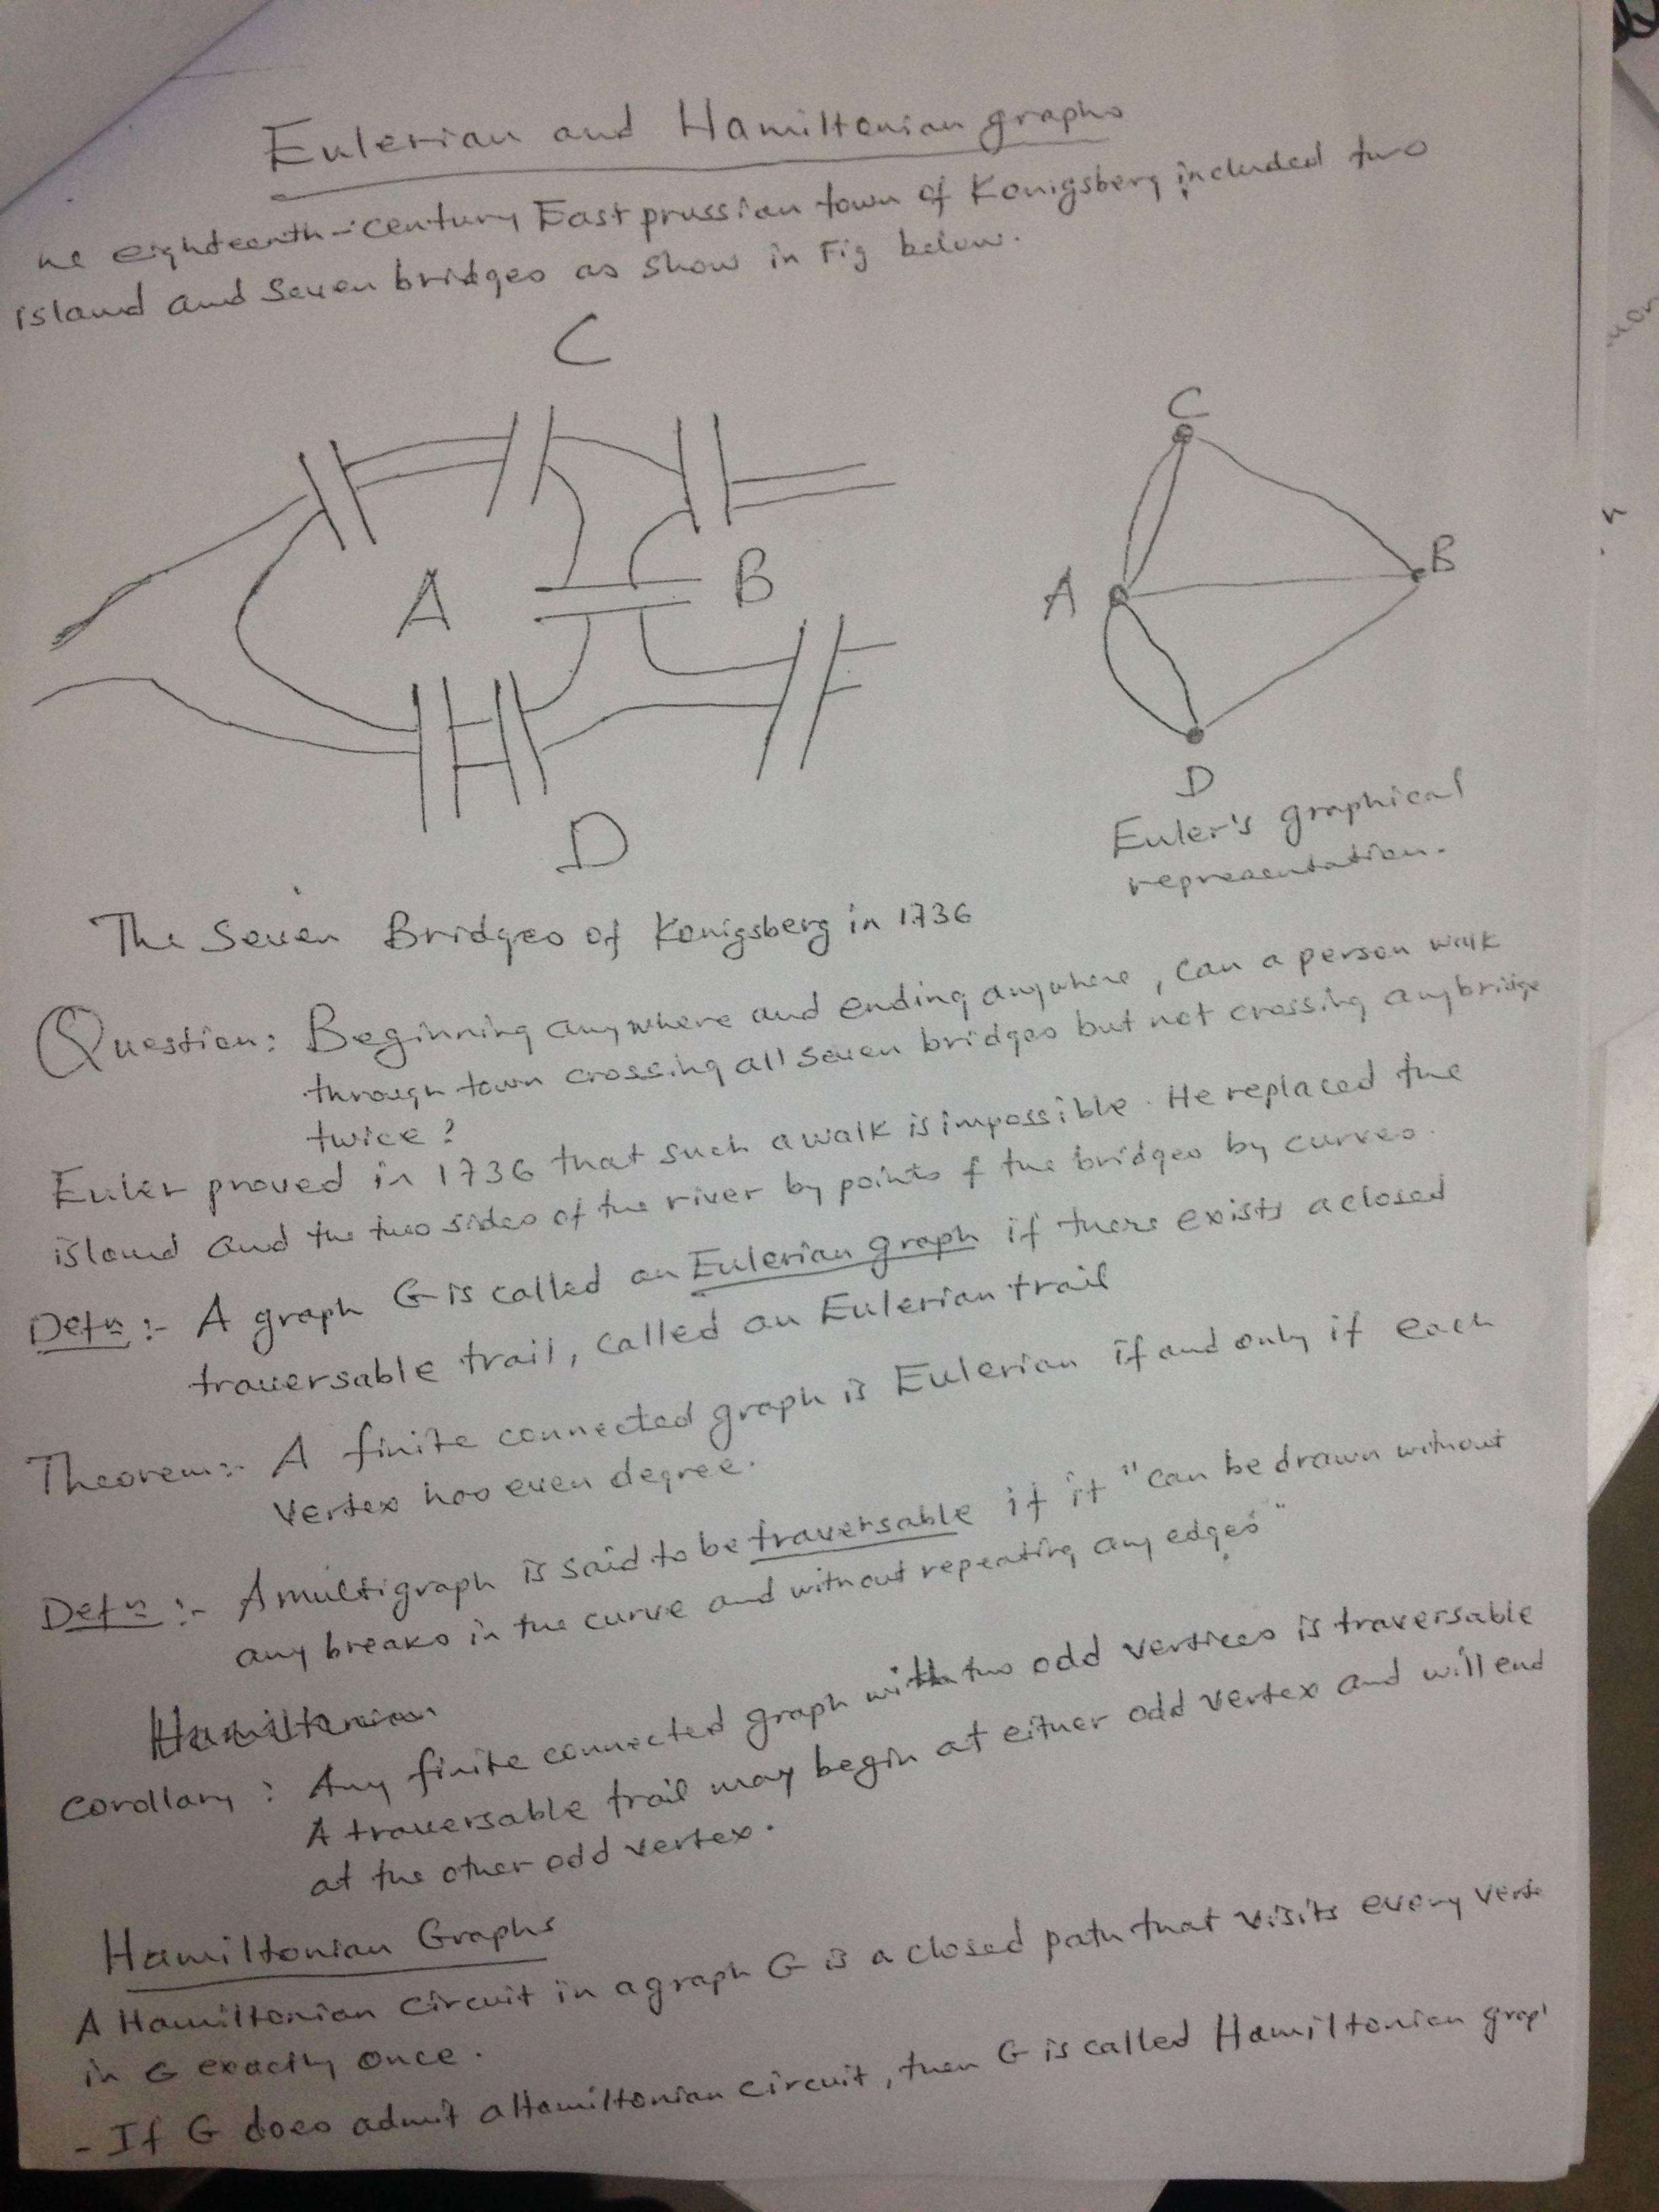 Eulerian and Hamiltonian graphs
he eighteenth-century East prussian town of Konigsberg included two
island and seven bridges as show in Fig below.
C
A
B
D
C
A
B
D
Euler's graphical
representation.
The Seven Bridges of Konigsberg in 1736
Question: Beginning anywhere and ending anywhere, can a person walk
through town crossing all seven bridges but not crossing any bridge
twice?
Euler proved in 1736 that such a walk is impossible. He replaced the
island and the two sides of the river by points & the bridges by curves.
Defn :- A graph G is called an Eulerian graph if there exists a closed
traversable trail, called an Eulerian trail
Theorem:- A finite connected graph is Eulerian if and only if each
vertex has even degree.
Defn :- A multigraph is said to be traversable if it "can be drawn without
any breaks in the curve and without repeating any edges"
Hamiltonian
Corollary : Any finite connected graph with two odd vertices is traversable
A traversable trail may begin at either odd vertex and will end
at the other odd vertex.
Hamiltonian Graphs
A Hamiltonian circuit in a graph G is a closed path that visits every verte
in G exactly once.
- If G does admit a Hamiltonian circuit, then G is called Hamiltonian grap